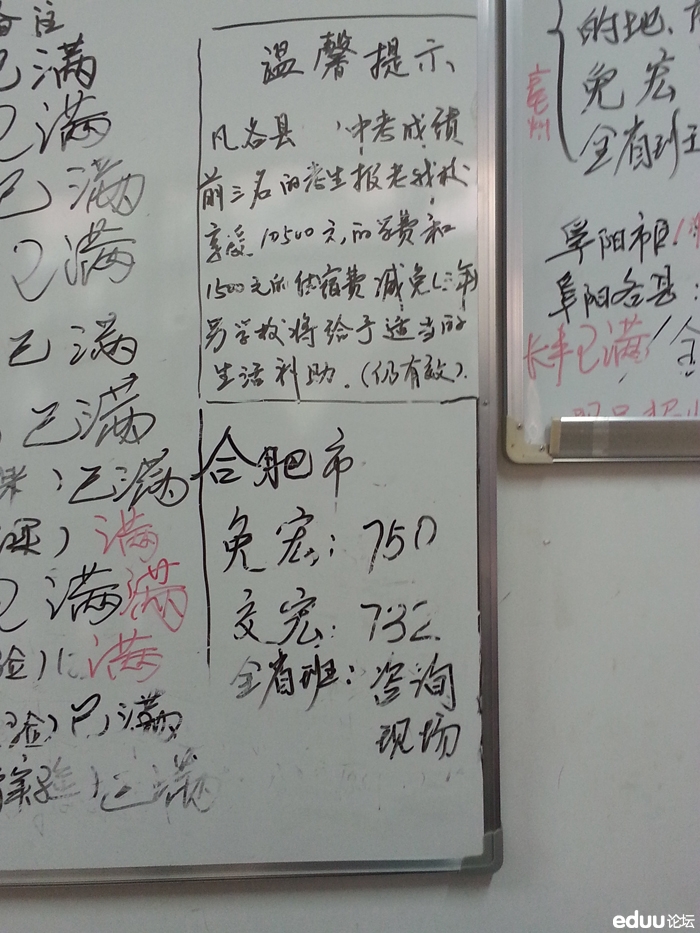 备注
已满
已满
已满
已满
已满
已满
已满
满
已满满
满
验)已满
已满
温馨提示
凡各县,中考成绩
前三名的考生报考我校
享受10500元,的学费和
1500元的住宿费减免(三年)
另学校将给予适当的
生活补助.(仍有效).
合肥市
免宏:750
交宏:732
全省班:咨询
现场
的地、
亳州
免宏
全省班
阜阳市
阜阳各县:
长丰已满
全
eduu论坛